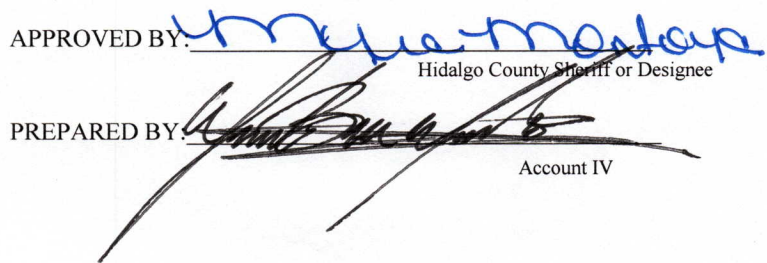 APPROVED BY: Montoya
Hidalgo County Sheriff or Designee
PREPARED BY:
Account IV